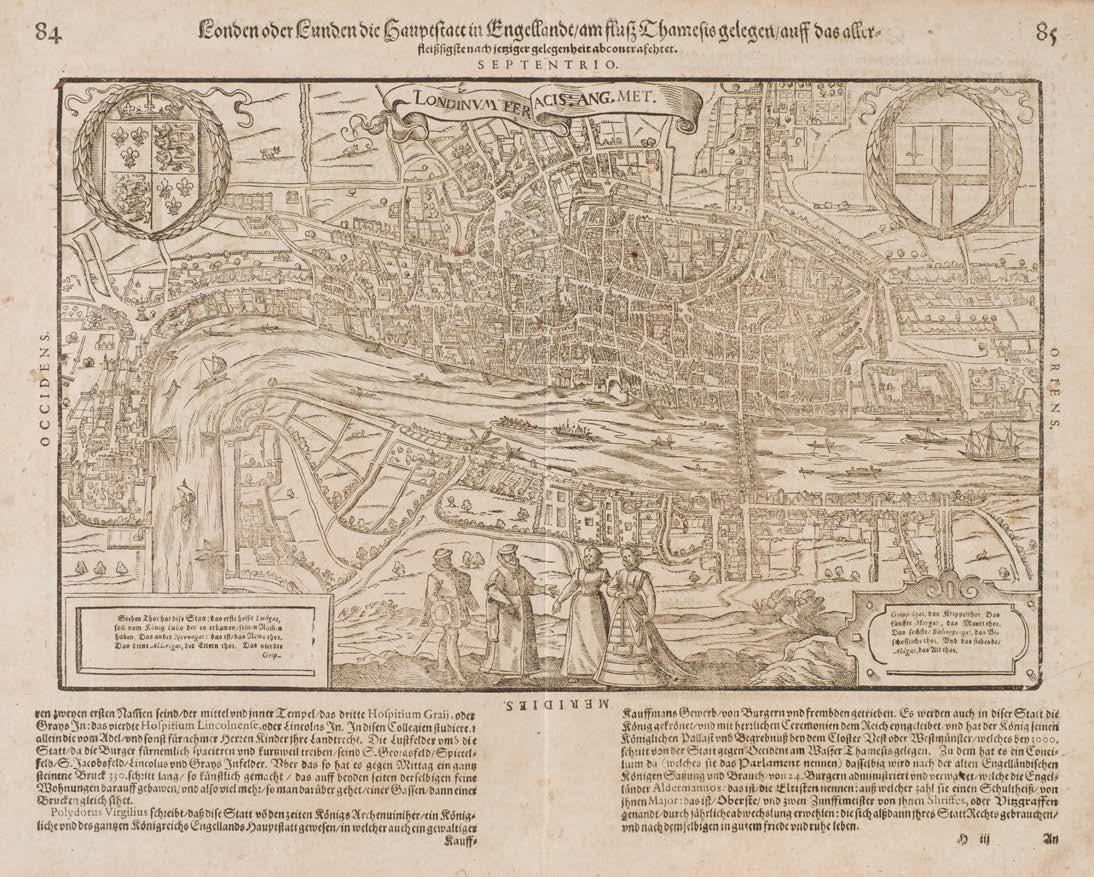 84
85
Londen oder Lunden die Hauptstatt in Engellandt/am fluß Thamesis gelegen/auff das aller-
fleißsigste nach jetziger gelegenheit abcontrafehtet.
SEPTENTRIO.
LONDINVM FERACISS: ANG. MET.
OCCIDENS.
ORIENS.
Sieben Thor hat dise Statt: das erste heißt Ludgat,
soll vom König Ludo der es erbawen/seinen Namen
haben. Das ander Newgat: das ist/das Newe thor.
Das dritte Aldersgat, der Eltern thor. Das vierdte
Grip-
Grippelgat, das Kripperthor. Das
fünffte Morgat, das Maurt thor.
Das sechste/ Bishoppsgat, das Bi-
schoffliche thor. Vnd das siebende/
Aldgat, das Alt thor.
MERIDIES.
ren zweyen ersten Nammen seind/der mittel vnd jnner Tempel/das dritte Hospitium Graij, oder
Grays Jn: das vierdte Hospitium Lincolnense, oder Lincolns Jn. Jn disen Collegien studiert
allein die vom Adel/vnd sonst fürnehmer Herren Kinder jhre Landtrecht. Die Lustfelder vmb die
Statt/da die Burger fürnemlich spacieren vnd kurtzweil treiben/seind S. Georgsfeld/Spittel-
feld/S. Jacobsfeld/Lincolus vnd Grays Jnfelder. Vber das so hat es gegen Mittag ein gantz
steinene Bruck 330. schritt lang/so künstlich gemacht/das auff beyden seiten derselbigen feine
Wohnungen darauff gebawen/vnd also viel mehr/so man darüber gehet/einer Gassen/dann einer
Brucken gleich sihet.
Polydorus Virgilius schreibt/daß dise Statt vō den zeiten Königs Archenuiniher/ein König-
liche vnd des gantzen Königreichs Engellands Hauptstatt gewesen/in welcher auch ein gewaltiger
Kauff-
Kauffmans Gewerb/von Burgern vnd frembden getrieben. Es werden auch in diser Statt die
König gekrönet/vnd mit herrlichen Ceremonien dem Reich eyngeleibt. vnd hat der König seinen
Königlichen Pallast vnd Begrebnuß bey dem Closter Vest oder Westmünster/welches bey 1000.
schritt von der Statt gegen Occident am Wasser Thamesis gelegen. Zu dem hat es ein Conci-
lium da (welches sie das Parlament nennen) dasselbig wird nach der alten Engelländischen
Königen Satzung vnd Brauch/von 24. Burgern administriert vnd verwaltet/welche die Engel-
länder Aldermannos: das ist/die Eltisten nennen: auß welcher zahl sie einen Schultheiß/von
jhnen Major: das ist/Oberste/vnd zwen Zunffmeister von jhnen Shriffes, oder Vitzgraffen
genandt/durch jährliche abwechslung erwehlen: die sich alßdann jhres Statt Rechts gebrauchen/
vnd nach demselbigen in gutem friede vnd ruhe leben.
H iij
An